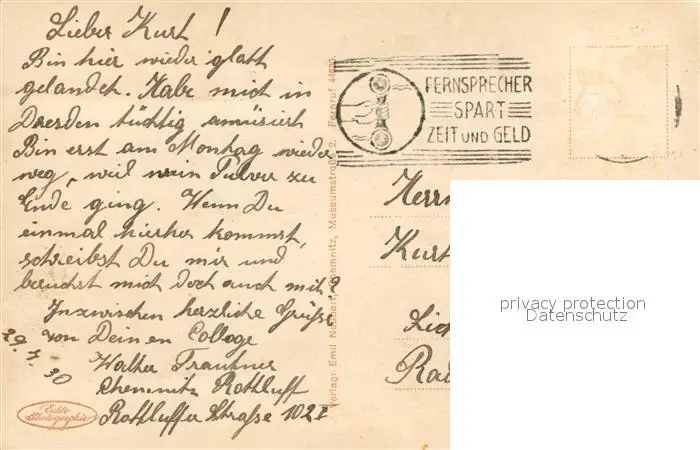 Lieber Kurt!
Bin hier wieder glatt
gelandet. Habe mich in
Dresden tüchtig amüsiert
Bin erst am Montag wieder
weg, weil mein Pulver zu
Ende ging. Wenn Du
einmal hierher kommst,
schreibst Du mir und
besuchst mich doch auch mit?
Inzwischen herzliche Grüße
von Deinen Colloge
Walther
Chemnitz Rottluff
Rottluffer Straße 102
29.7.30
Echte
Photographie
Verlag: Emil Chemnitz, Museumstraße 2. Fernruf
FERNSPRECHER
SPART
ZEIT UND GELD
Herrn
Kurt
privacy protection
Datenschutz